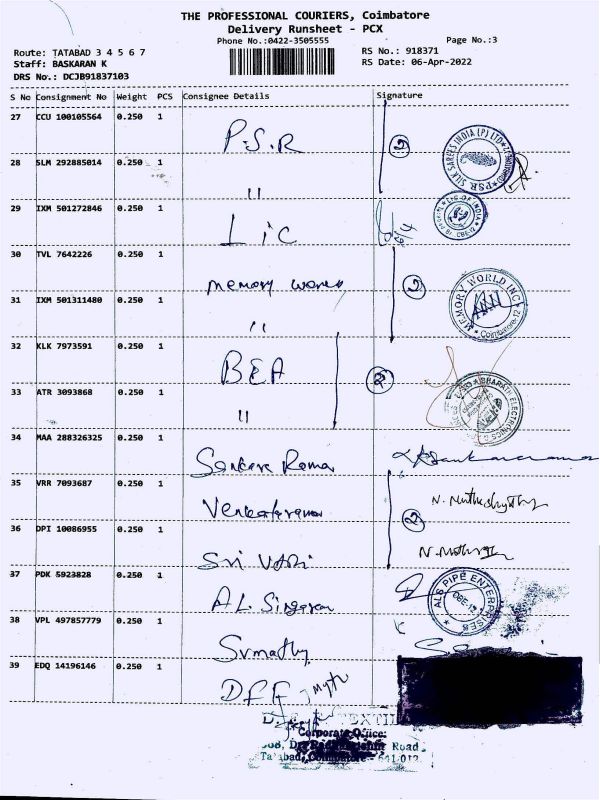 THE PROFESSIONAL COURIERS, Coimbatore
Delivery Runsheet - PCX
Phone No.:0422-3505555
Page No.:3
Route: TATABAD 3 4 5 6 7
Staff: BASKARAN K
DRS No.: DCJB91837103
RS No.: 918371
RS Date: 06-Apr-2022
S No Consignment No Weight PCS Consignee Details Signature
27 CCU 100105564 0.250 1 P.S.R 2
PSR SILK SAREES INDIA (P) LTD
28 SLM 292885014 0.250 1 "
29 IXM 501272846 0.250 1 LIC
LIC OF INDIA
30 TVL 7642226 0.250 1 memory
2
MEMORY WORLD INC
Coimbatore-12
31 IXM 501311480 0.250 1 "
32 KLK 7973591 0.250 1 BEA 2
BHARATI ELECTRONICS
33 ATR 3093868 0.250 1 "
34 MAA 288326325 0.250 1 Sankara Raman
35 VRR 7093687 0.250 1 Venkataraman
2
36 DPI 10086955 0.250 1 Sri
37 PDK 5923828 0.250 1 A.L.
ALS PIPE ENTERPRISES
CBE-12
38 VPL 497857779 0.250 1 Sumathy
39 EDQ 14196146 0.250 1
TEXTIL
Corporate Office:
Road
Tatabad, Coimbatore - 641 012